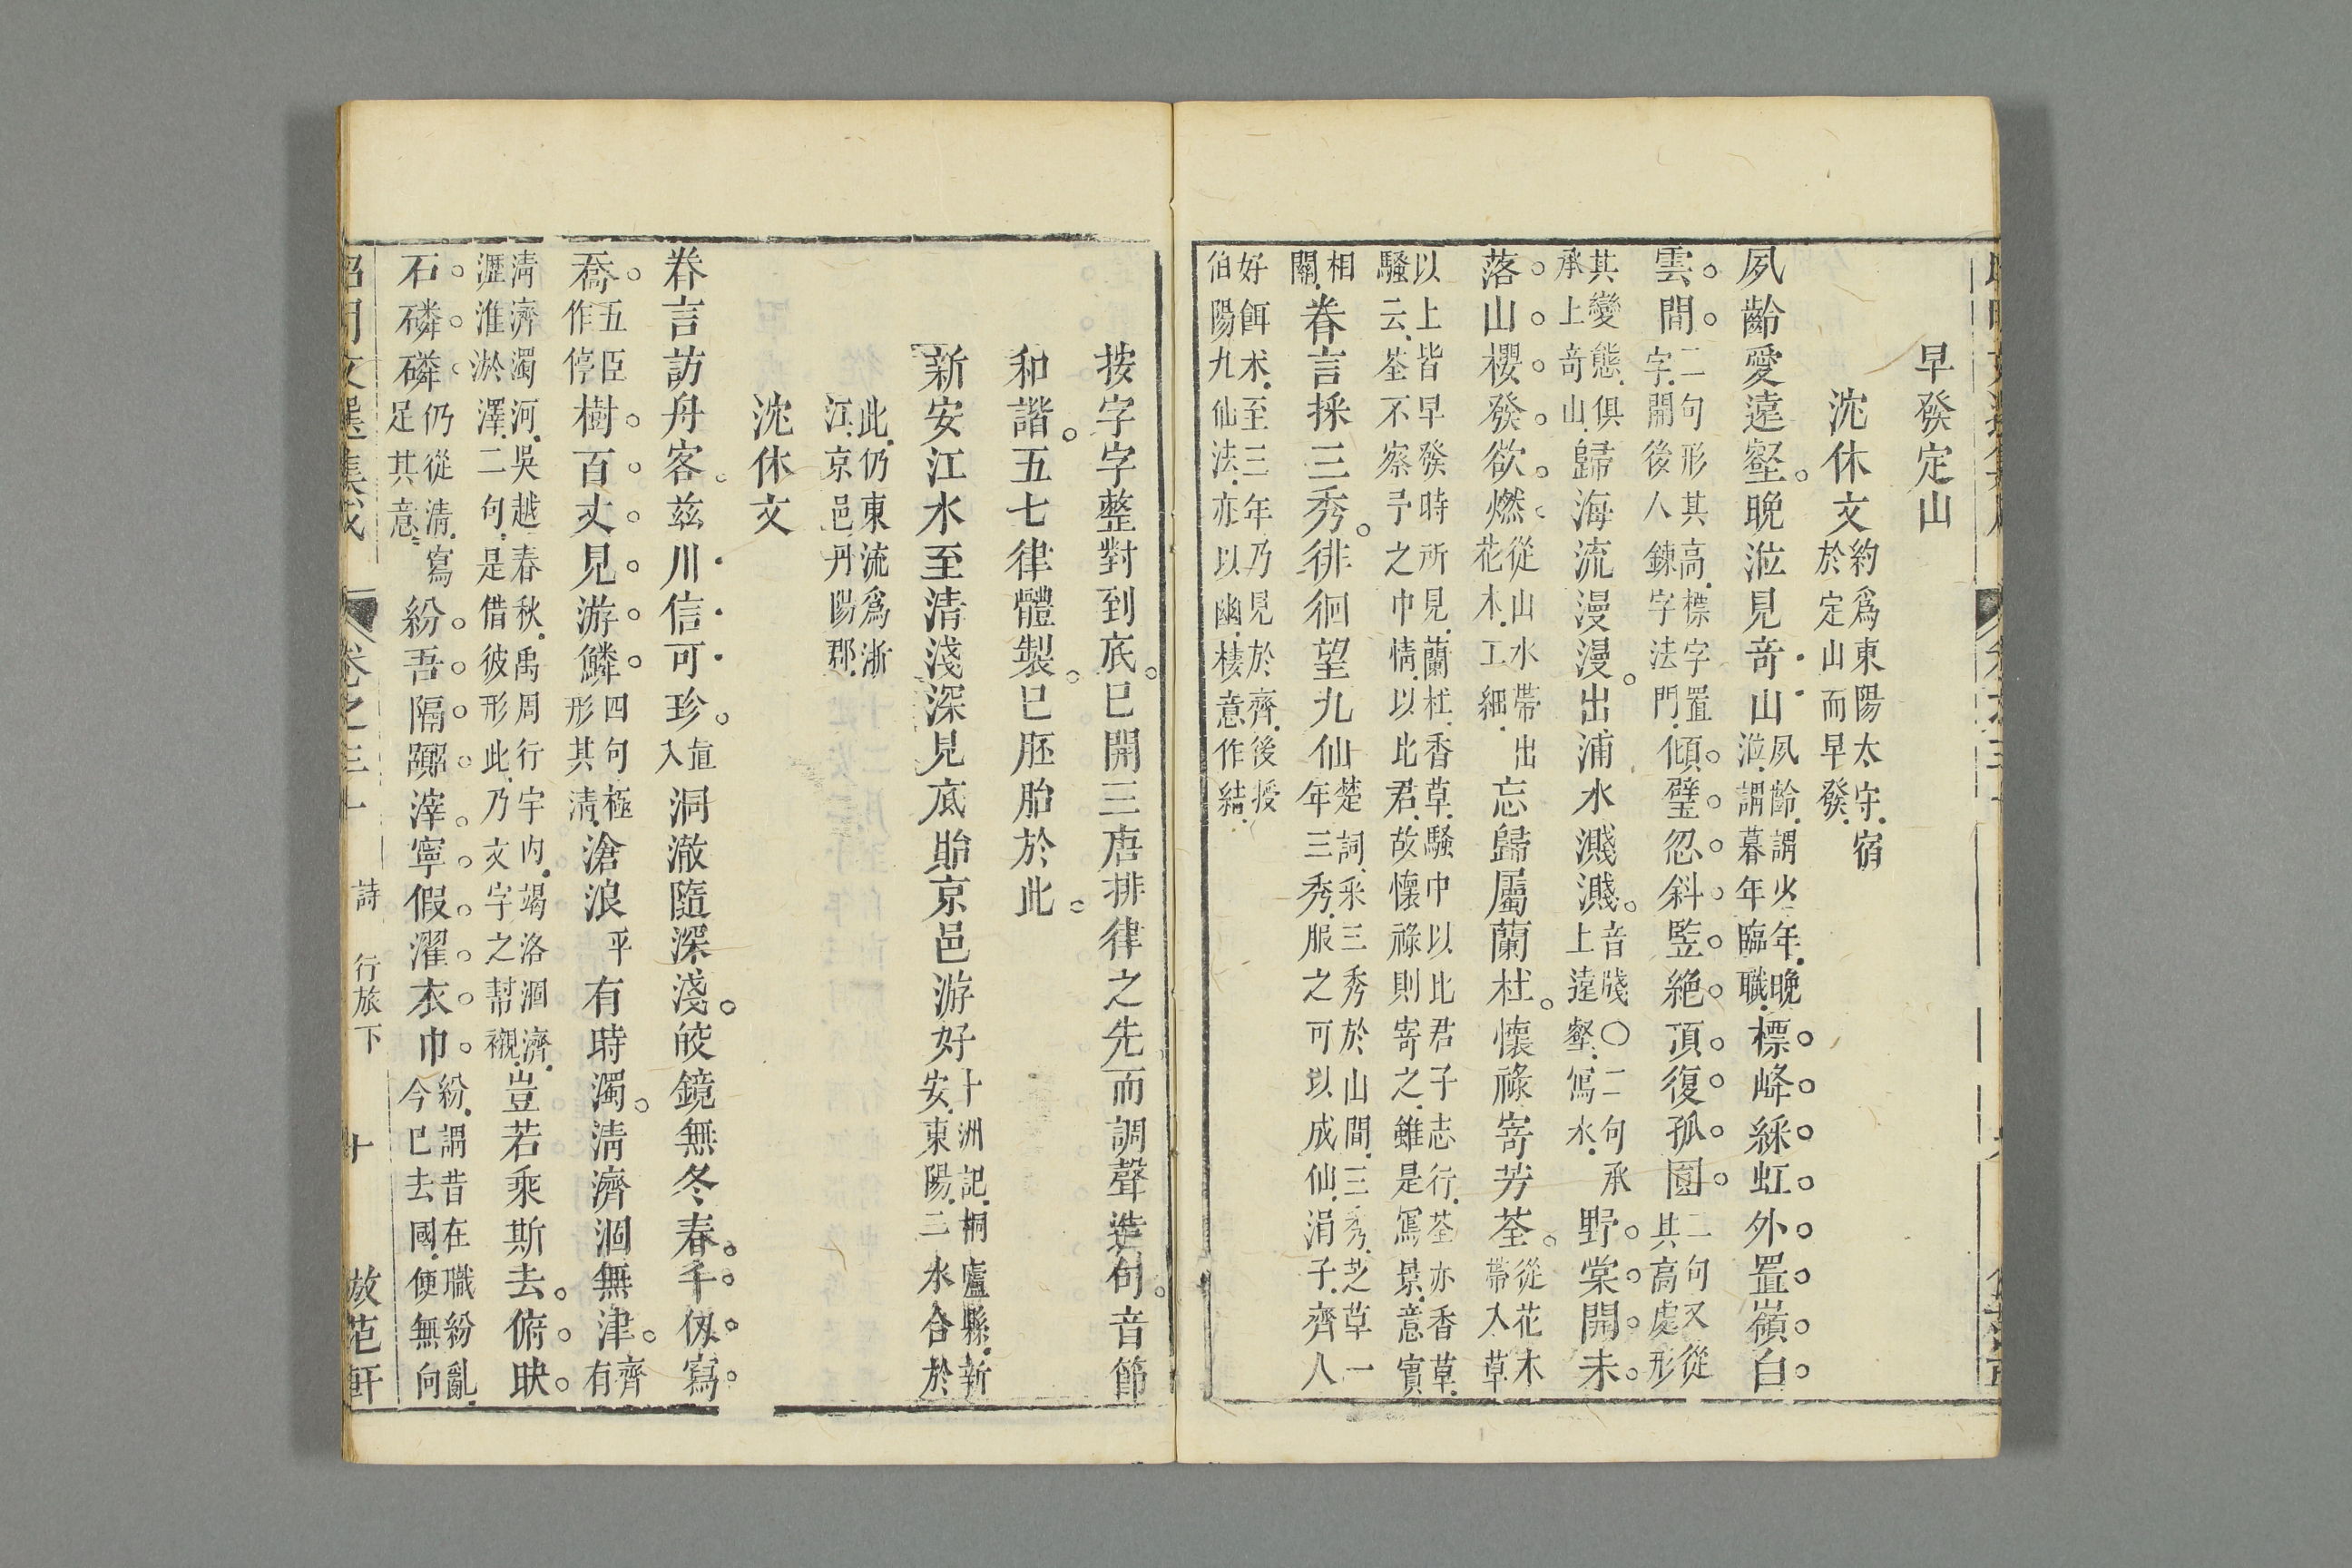 早發定山
沈休文約爲東陽太守宿於定山而早發
夙齡愛遠壑晚涖見奇山夙齡謂少年晚涖謂暮年臨職標峰綵虹外置嶺白
雲間二句形其高標字置字開後人鍊字法門傾壁忽斜竪絶頂復孤圓二句又從其高處形
其變態俱承上奇山歸海流漫漫出浦水濺濺音牋〇二句承上遠壑寫水野棠開未
落山櫻發欲燃從山水帶出花木工細忘歸屬蘭杜懷祿寄芳荃從花木帶入草
以上皆早發時所見蘭杜香草騷中以比君子志行荃亦香草騷云荃不察予之中情以此君故懷祿則寄之雖是寫景意實
相關眷言採三秀徘徊望九仙楚詞采三秀於山間三秀芝草一年三秀服之可以成仙涓子齊人
好餌术至三年乃見於齊後授伯陽九仙法亦以幽棲意作結
按字字整對到底已開三唐排律之先而調聲造句音節
和諧五七律體製已胚胎於此
新安江水至清淺深見底貽京邑游好十洲記桐廬縣新安東陽二水合於
此仍東流爲浙江京邑丹陽郡
沈休文
眷言訪舟客茲川信可珍直入洞澈隨深淺皎鏡無冬春千仞寫
喬五臣作停樹百丈見游鱗四句極形其清滄浪平有時濁淸濟涸無津齊有
淸濟濁河吳越春秋禹周行宇内竭洛涸濟瀝淮於澤二句是借彼形此乃文字之幇襯豈若乘斯去俯映
石磷磷仍從淸足其意寫紛吾隔躑滓寧假濯衣巾紛謂昔在職紛亂今已去國便無向
昭明文選集成　卷之三十　詩　行旅下　十　倣范軒